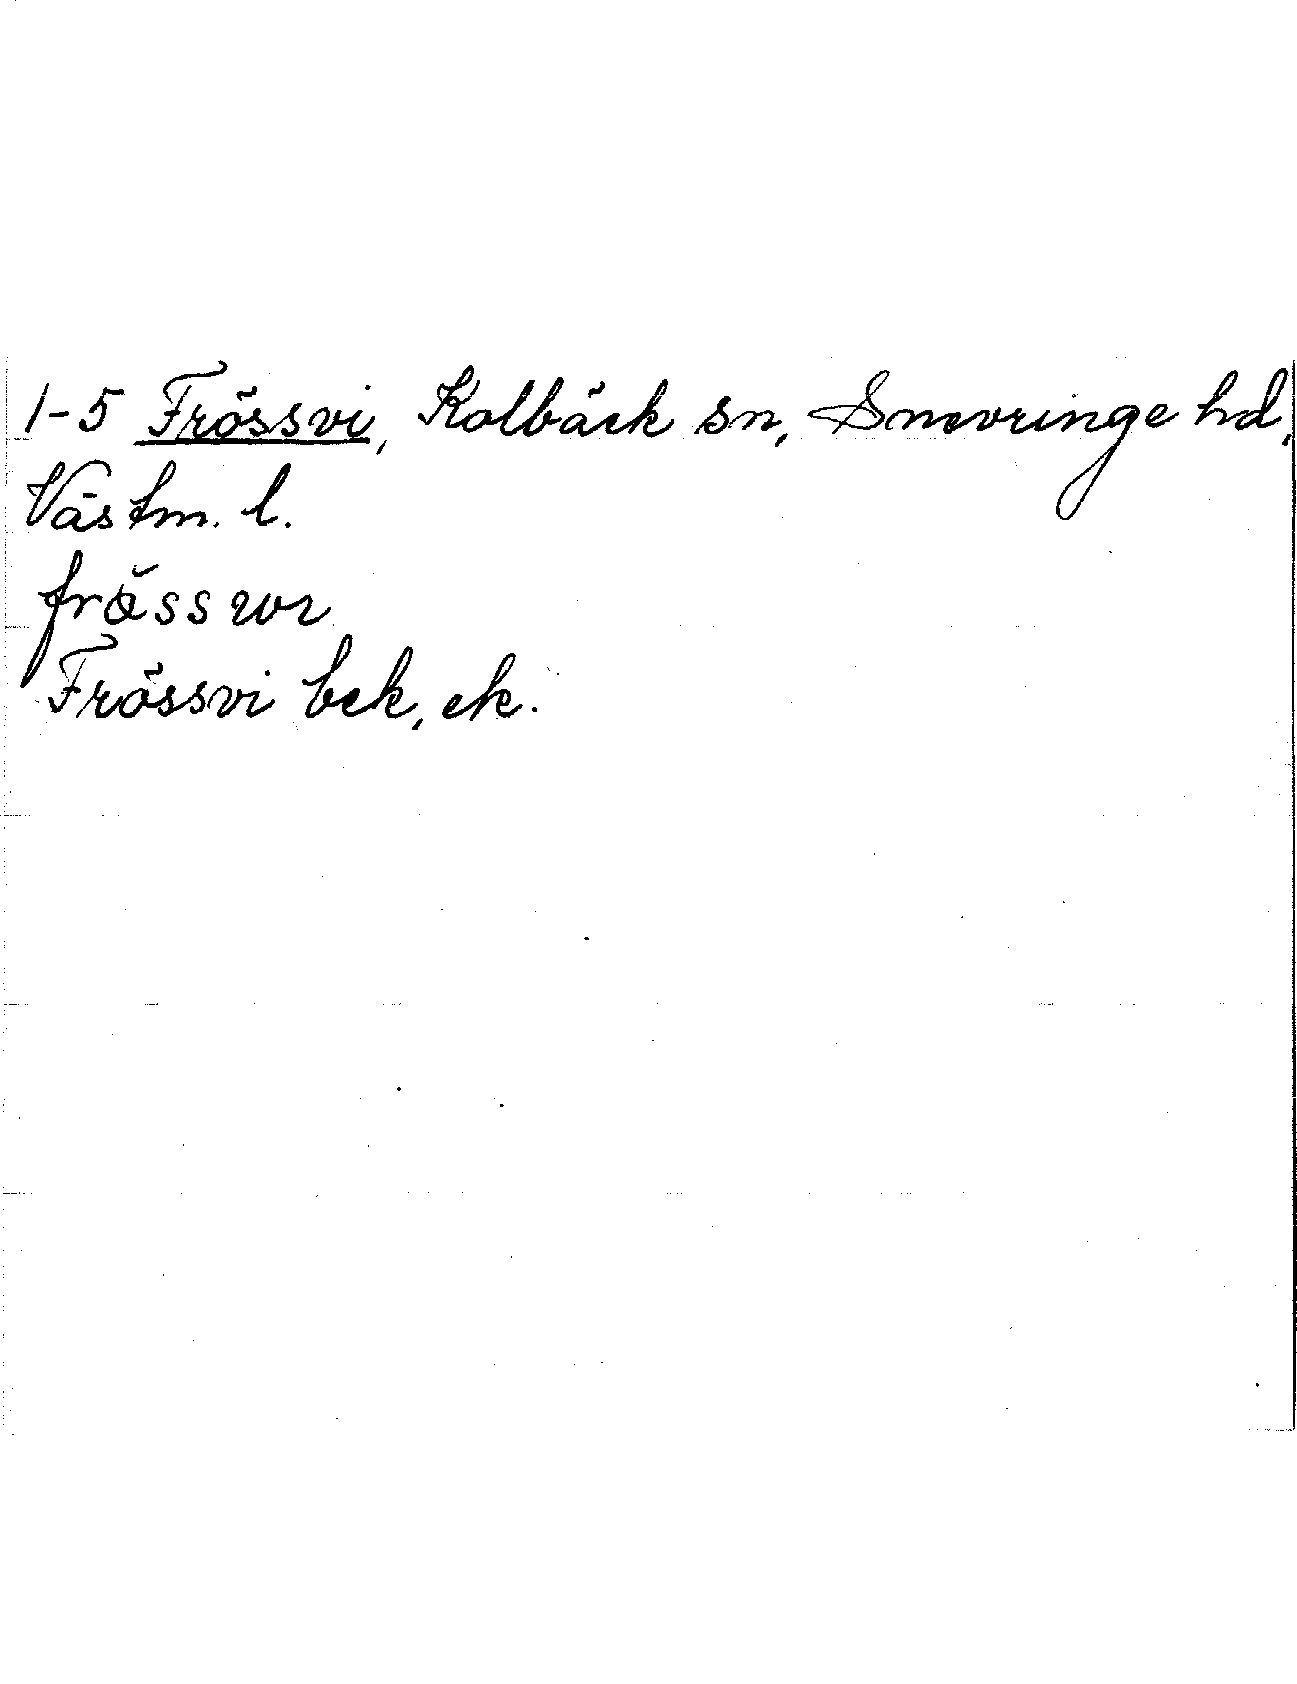 1-5 Frössvi, Kolbäck sn, Snevringe hd,
Västm. l.
Frössvi bek, ek.